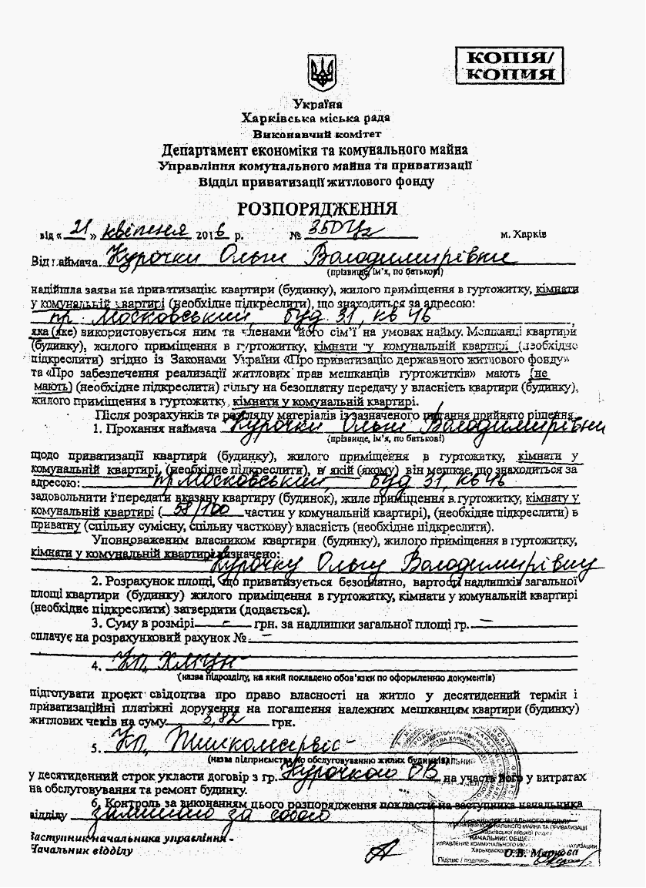 КОПІЯ/
КОПИЯ
Україна
Харківська міська рада
Виконавчий комітет
Департамент економіки та комунального майна
Управління комунального майна та приватизації
Відділ приватизації житлового фонду
РОЗПОРЯДЖЕННЯ
від « 21 » квітня 2016 р. № м. Харків
Від наймача Курочки Ольги Володимирівни
(прізвище, ім'я, по батькові)
надійшла заява на приватизацію квартири (будинку), жилого приміщення в гуртожитку, кімнати
у комунальній квартирі (необхідне підкреслити), що знаходиться за адресою:
пр. Московський буд 31, кв 46
яка (яке) використовується ним та членами його сім'ї на умовах найму. Мешканці квартири
(будинку), жилого приміщення в гуртожитку, кімнати у комунальній квартирі (необхідне
підкреслити) згідно із Законами України «Про приватизацію державного житлового фонду»
та «Про забезпечення реалізації житлових прав мешканців гуртожитків» мають (не
мають) (необхідне підкреслити) пільгу на безоплатну передачу у власність квартири (будинку),
жилого приміщення в гуртожитку, кімнати у комунальній квартирі.
Після розрахунків та розгляду матеріалів із зазначеного питання прийнято рішення
1. Прохання наймача Курочки Ольги Володимирівни
(прізвище, ім'я, по батькові)
щодо приватизації квартири (будинку), жилого приміщення в гуртожитку, кімнати у
комунальній квартирі, (необхідне підкреслити), в якій (якому) він мешкає, що знаходиться за
адресою: пр Московський, буд 31 кв 46
задовольнити і передати вказану квартиру (будинок), жиле приміщення в гуртожитку, кімнату у
комунальній квартирі ( 58/100 частин у комунальній квартирі), (необхідне підкреслити) в
приватну (спільну сумісну, спільну часткову) власність (необхідне підкреслити).
Уповноваженим власником квартири (будинку), жилого приміщення в гуртожитку,
кімнати у комунальній квартирі визначено:
Курочку Ольгу Володимирівну
2. Розрахунок площі, що приватизується безоплатно, вартості надлишків загальної
площі квартири (будинку) жилого приміщення в гуртожитку, кімнати у комунальній квартирі
(необхідне підкреслити) затвердити (додається).
3. Суму в розмірі - грн. за надлишки загальної площі гр. —
сплачує на розрахунковий рахунок № —
4. КП
(назва підрозділу, на який покладено обов'язки по оформленню документів)
підготувати проект свідоцтва про право власності на житло у десятиденний термін і
приватизаційні платіжні доручення на погашення належних мешканцям квартири (будинку)
житлових чеків на суму 5,82 грн.
5. КП "Жилкомсервіс"
(назва підприємства по обслуговуванню жилих будинків)
у десятиденний строк укласти договір з гр. Курочкою ОВ на участь його у витратах
на обслуговування та ремонт будинку.
6. Контроль за виконанням цього розпорядження покласти на заступника начальника
відділу залишаю за собою
Заступник начальника управління -
Начальник відділу
О.В. Маркова